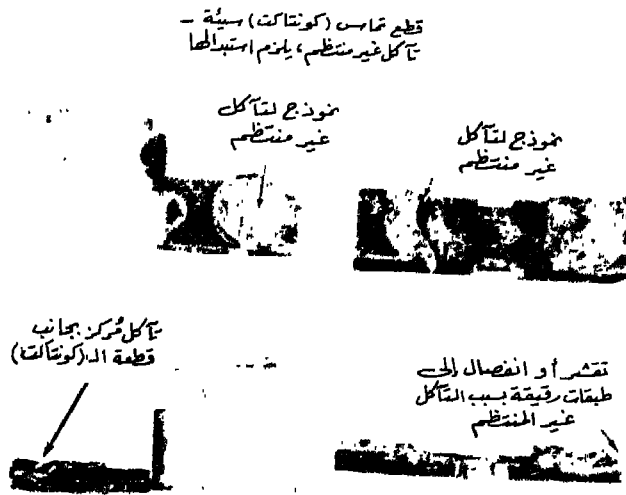 قطع تماس (كونتاكت) سيئة –
تآكل غير منتظم، يلزم استبدالها
نموذج لتآكل
غير منتظم
نموذج لتآكل
غير منتظم
تآكل مُركز بجانب
قطعة الـ(كونتاكت)
تقشر أو انفصال إلى
طبقات رقيقة بسبب التآكل
غير المنتظم